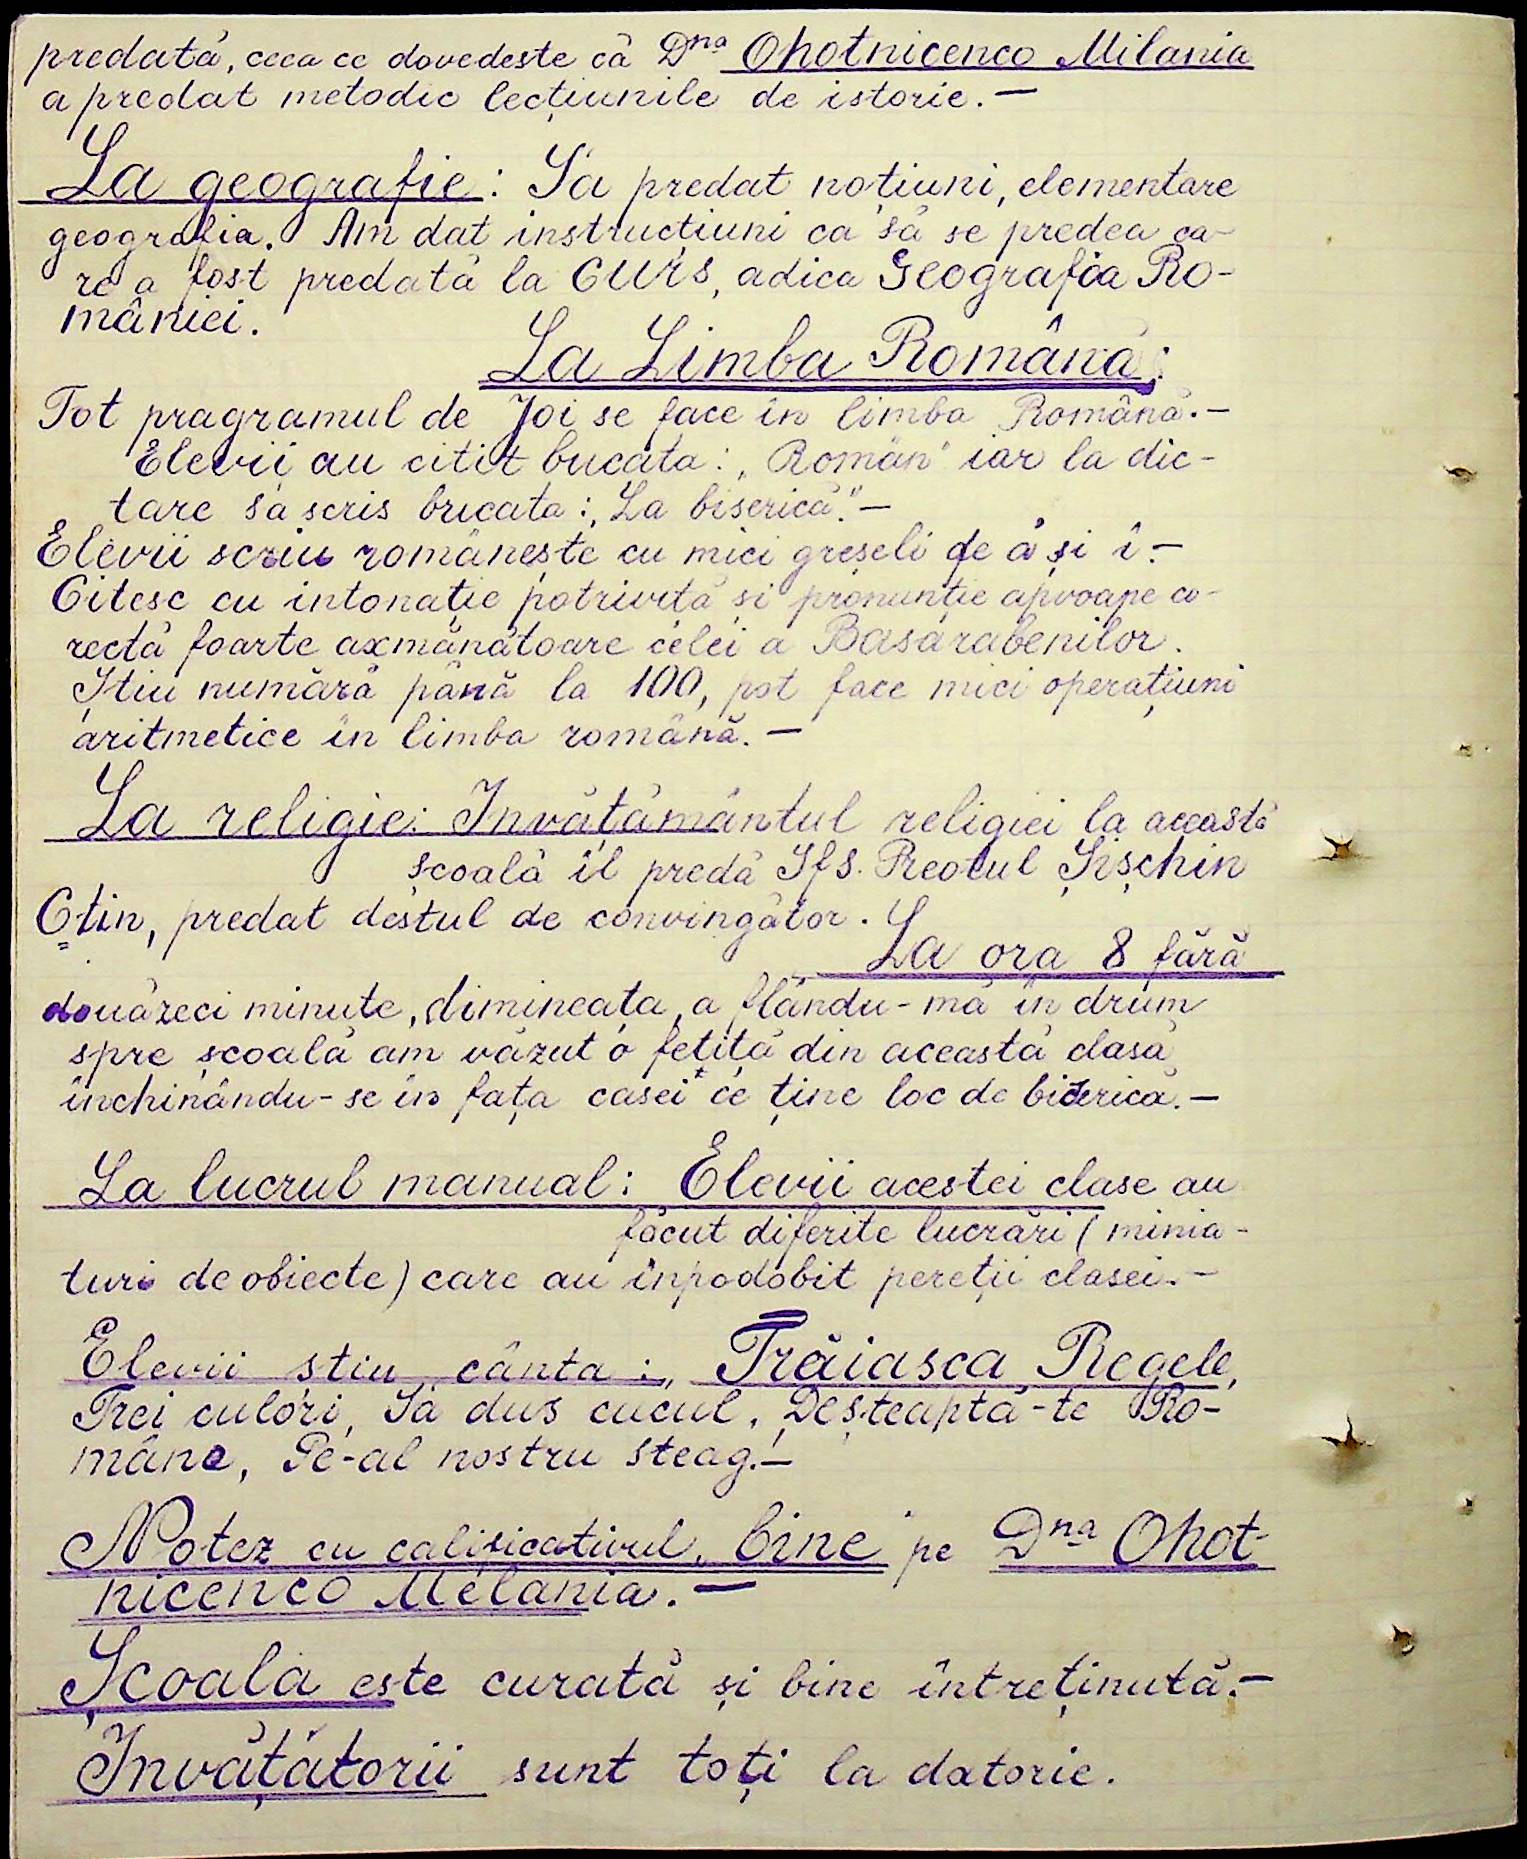 predată, ceea ce dovedeste că Dna Ohotnicenco Milania
a predat metodic lecțiunile de istorie. —
La geografie: Sa predat noțiuni, elementare
geografia. Am dat instrucțiuni ca să se predea ca-
re a fost predată la curs, adica Geografia Ro-
mâniei.
La Limba Română:
Tot pragramul de Joi se face în limba Română. —
Elevii au citit bucata: „Român" iar la dic-
tare sa scris bucata: „La biserică." —
Elevii scriu românește cu mici greșeli de ă și î. —
Citesc cu intonație potrivită si pronunție aproape co-
rectă foarte asemănătoare celei a Basarabenilor.
Știu numără până la 100, pot face mici operațiuni
aritmetice în limba română. —
La religie: Invățământul religiei la această
școală îl predă Sfs. Preotul Șișchin
Ctin, predat destul de convingător.
La ora 8 fără
douăzeci minute, dimineața, a flându-mă în drum
spre școală am văzut o fetiță din această clasă
închinându-se în fața casei ce ține loc de biserică. —
La lucrul manual: Elevii acestei clase au
făcut diferite lucrări (minia-
turi de obiecte) care au înpodobit pereții clasei. —
Elevii stiu cânta: „Trăiasca Regele,
Trei culori, Sa dus cucul, Deșteaptă-te Ro-
mâne, Pe-al nostru steag. —
Notez cu calificativul „bine" pe Dna Ohot-
nicenco Melania. —
Școala este curată și bine întreținută. —
Invățătorii sunt toți la datorie.